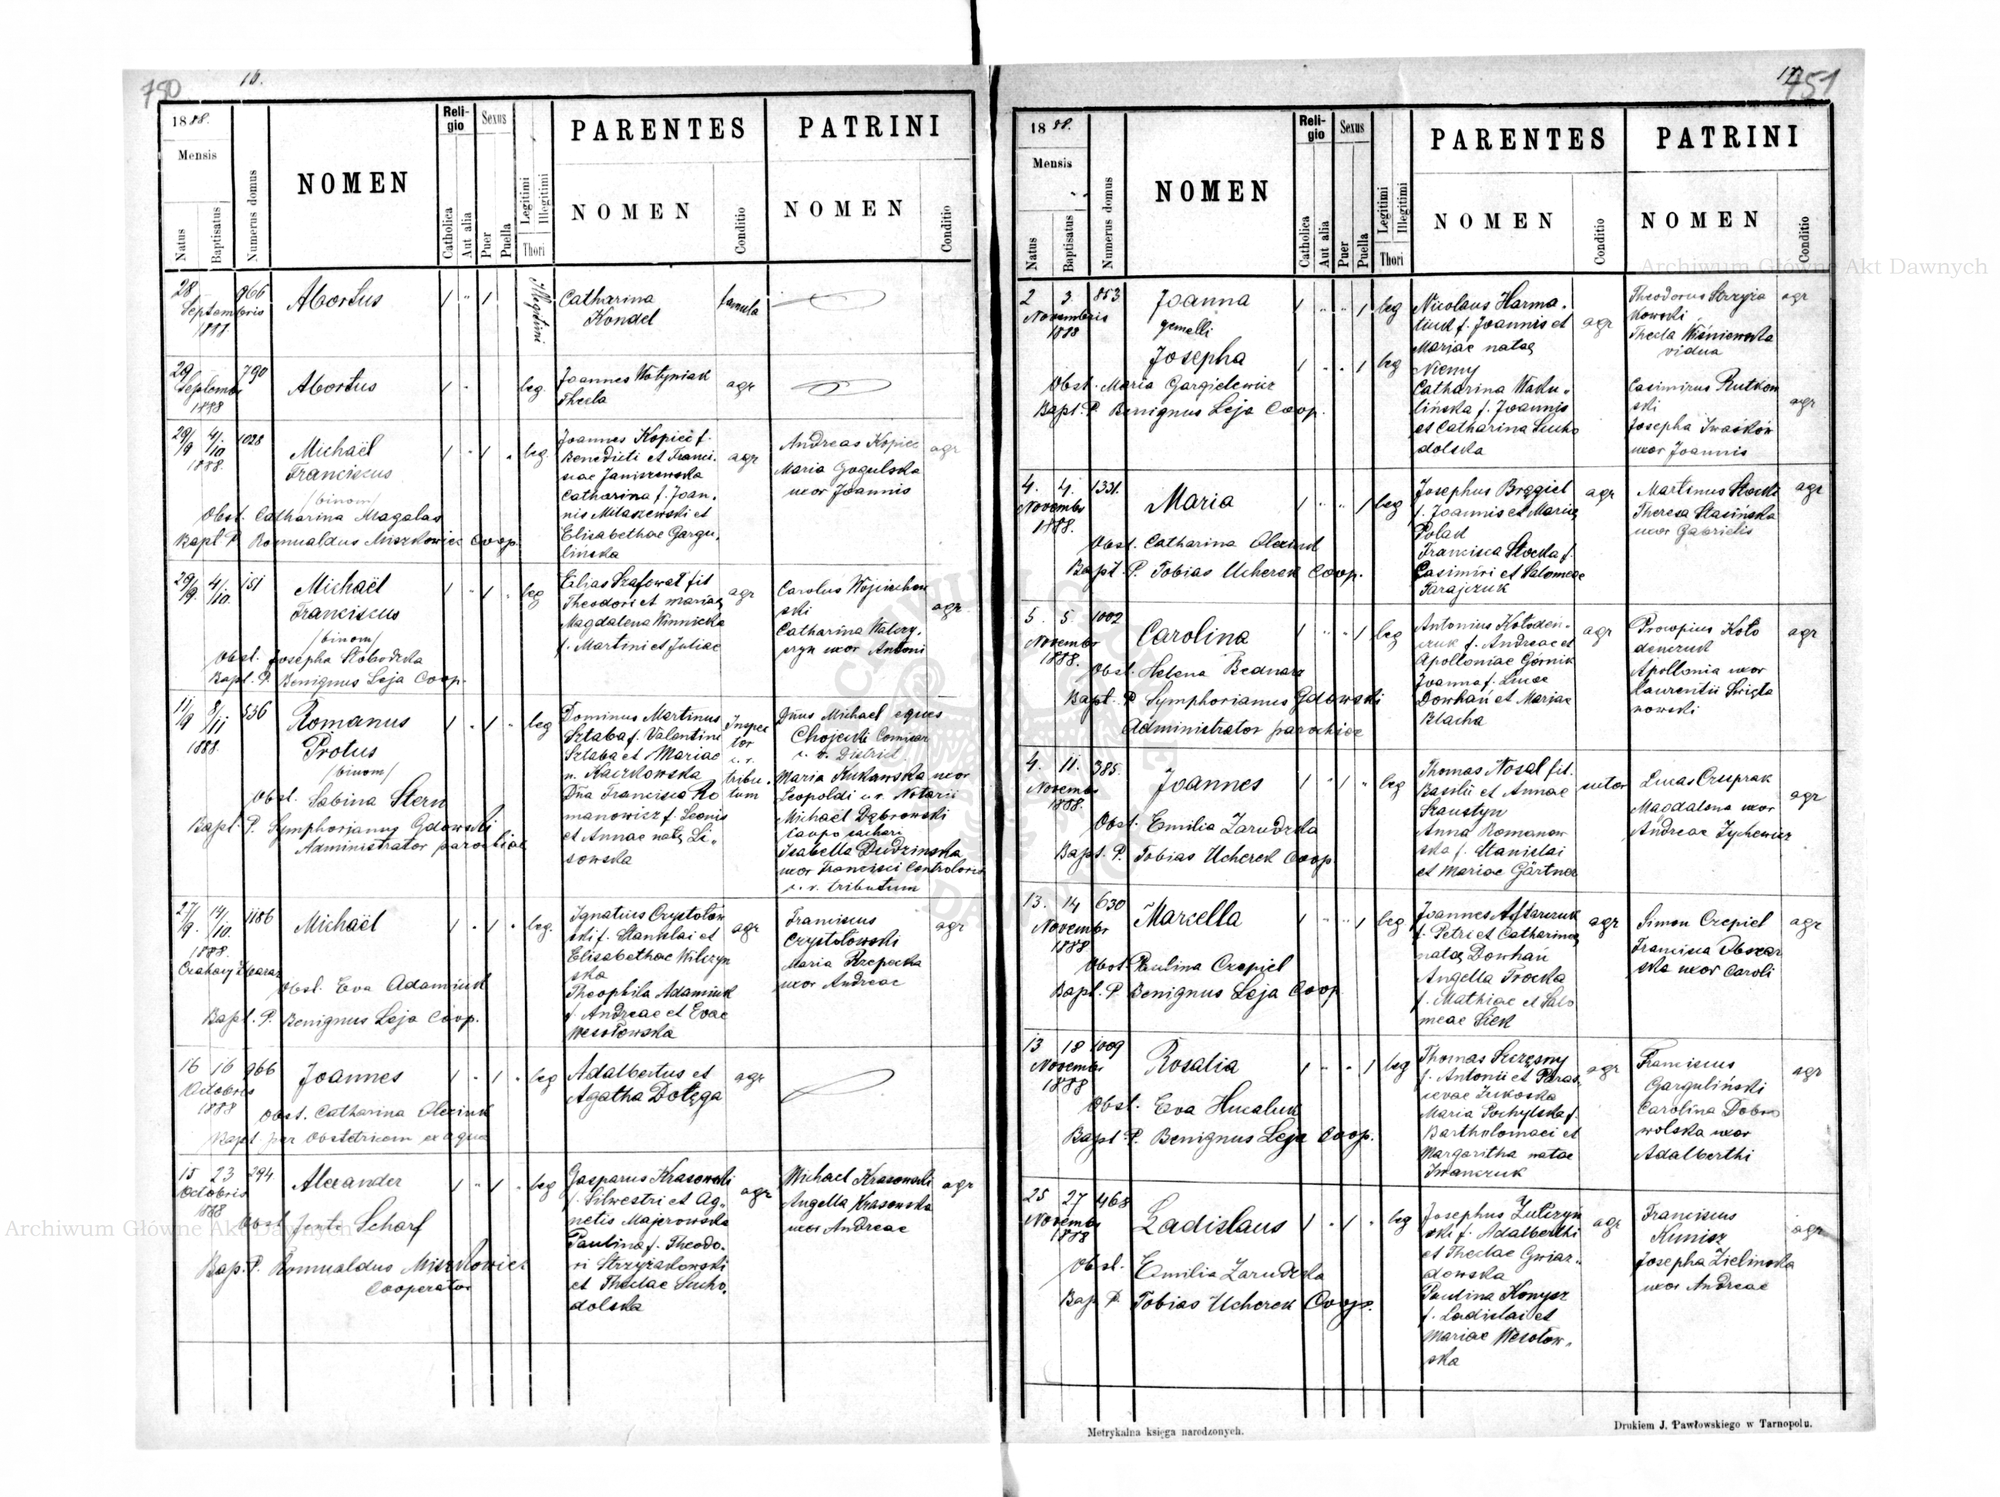 750
16.
1888.
Mensis
Natus
Baptisatus
Numerus domus
NOMEN
Reli-
gio
Catholica
Aut alia
Sexus
Puer
Puella
Legitimi
Illegitimi
Thori
PARENTES
NOMEN
Conditio
PATRINI
NOMEN
Conditio
28 966
Septembris
Abortus
1 " 1
Illegitimi
Catharina
Kondel
famula
29 790
Septembr
1888
Abortus
1
leg
Joannes Wołyniak
Thecla
agr
29/9 4/10 1028
1888.
Michaël
Franciscus
/binom/
1 " 1 "
leg.
Obst. Catharina Magalas
Bapt. P. Romualdus Miszkowicz Coop.
Joannes Kopieć f.
Benedicti et Franci-
scae Janiszewska
Catharina f. Joan-
nis Milaszewski et
Elisabethae Gargu-
lińska
agr
Andreas Kopiec
Maria Gogulska
uxor Joannis
agr
29/9. 4/10. 151
Michaël
Franciscus
/binom/
1 " 1 "
leg
Obst. Josepha Słobodzka
Bapt. P. Benignus Leja Coop.
Elias Szafowat fil
Theodori et Mariae
Magdalena Winnicka
f. Martini et Juliae
agr
Carolus Wojciechow
ski
Catharina Walczy-
szyn uxor Antoni
agr.
11/9 8/11 536
1888
Romanus
Protus
/binom/
1 " 1 "
leg
Obst. Sabina Stern
Bapt. P. Symphorianus Gdowski
Administrator parochiae
Dominus Martinus
Sztaba f. Valentini
Sztaba et Mariae
n. Kaczkowska
Dña Francisca Ro
manowicz f. Leonis
et Annae natae Li-
sowska
Inspec
tor
c. r.
tribu-
tum
Dñus Michael eques
Chojecki Comisar
c. r. District.
Maria Kukawska uxor
Leopoldi c. r. Notarii
Michaël Dąbrowski
caupo sachari
Isabella Dudzinska
uxor Francisci Controloris
c. r. tributum
27/9. 14/10. 1186
1888.
Michaël
1 " 1 "
leg.
Obst. Eva Adamiuk
Bapt. P. Benignus Leja Coop.
Ignatius Crystołow
ski f. Stanislai et
Elisabethae Wilczyn
ska
Theophila Adamiuk
f. Andreae et Evae
Wesołowska
agr
Franciscus
Crystołowski
Maria Rzepecka
uxor Andreae
agr
16 16 966
Octobris
1888
Joannes
1 " 1 "
leg
Obst. Catharina Olexiuk
Bapt per Obstetricem ex aqua
Adalbertus et
Agatha Dołęga
agr
15 23 294
Octobris
1888
Alexander
1 " 1 "
leg
Obst. Jente Scharf
Bap. P. Romualdus Miszkowicz
Cooperator
Gasparus Krasowski
f. Silwestri et Ag-
netis Majerowska
Paulina f. Theodo-
ri Strzyżakowski
et Theclae Sucho-
dolska
agr
Michael Krasowski
Angella Krasowska
uxor Andreae
agr
17
751
1888.
Mensis
Natus
Baptisatus
Numerus domus
NOMEN
Reli-
gio
Catholica
Aut alia
Sexus
Puer
Puella
Legitimi
Illegitimi
Thori
PARENTES
NOMEN
Conditio
PATRINI
NOMEN
Conditio
2 3 853
Novembris
1888
Joanna
gemelli
Josepha
1 " " 1 leg
1 " " 1 leg
Obst. Maria Gargielewicz
Bapt. P. Benignus Leja Coop.
Nicolaus Harma-
tiuk f. Joannis et
Mariae natae
Niemy
Catharina Waku-
lińska f. Joannis
et Catharina Sucho
dolska
agr
Theodorus Strzyża
kowski
Thecla Wiśniewska
vidua
agr
Casimirus Rutkow
ski
Josepha Iwasków
uxor Joannis
agr
4. 4. 1331.
Novembr
1888.
Maria
1 " " 1
leg
Obst. Catharina Olexiuk
Bapt. P. Tobias Ucherek Coop.
Josephus Bręgiel
f. Joannis et Mariae
Polak
Francisca Stocka f.
Casimiri et Salomeae
Tarajczuk
agr
Martinus Stocki
Theresa Stasińska
uxor Gabrielis
agr
5. 5. 1002
Novembr
1888.
Carolina
1 " " 1
leg
Obst. Helena Bednarz
Bapt. P Symphorianus Gdowski
Administrator parochiae
Antonius Kołoden-
czuk f. Andreae et
Apolloniae Górnik
Joanna f. Lucae
Dowhań et Mariae
Blacha
agr
Procopius Koło
denczuk
Apollonia uxor
Laurentii Święta
nowski
agr
4. 11. 385.
Novembr
1888.
Joannes
1 " 1 "
leg
Obst. Emilia Zarudzka
Bapt. P. Tobias Ucherek Coop.
Thomas Nosal fil.
Basilii et Annae
Szaustyn
Anna Romanow
ska f. Stanislai
et Mariae Gärtner
sutor
Lucas Czuprak
Magdalena uxor
Andreae Zychewicz
agr
13. 14 630
Novembr
1888
Marcella
1 " " 1
leg
Obst. Paulina Czepiel
Bapt. P. Benignus Leja Coop
Joannes Aftarczuk
f. Petri et Catharinae
natae Dowhań
Angella Trocka
f. Mathiae et Salo
meae Siek
agr
Simon Czepiel
Francisca Obszar
ska uxor Caroli
agr
13 18 1009
Novembr
1888
Rosalia
1 " " 1
leg
Obst. Eva Hucaluk
Bapt. P. Benignus Leja Coop.
Thomas Szczęsny
f. Antonii et Paras-
cevae Żukoska
Maria Pochylska f.
Bartholomaei et
Margaritha natae
Iwanczuk
agr
Franciscus
Garguliński
Carolina Dobro
wolska uxor
Adalberthi
agr
25 27 468
Novembr
1888
Ladislaus
1 " 1 "
leg
Obst. Emilia Zarudzka
Bap P. Tobias Ucherek Coop.
Josephus Zulczyn
ski f. Adalberthi
et Theclae Gwiaz-
dowska
Paulina Konysz
f. Ladislai et
Mariae Wesołow-
ska
agr
Franciscus
Kunisz
Josepha Zielinska
uxor Andreae
agr
Metrykalna księga narodzonych.
Drukiem J. Pawłowskiego w Tarnopolu.
Archiwum Główne Akt Dawnych
Archiwum Główne Akt Dawnych